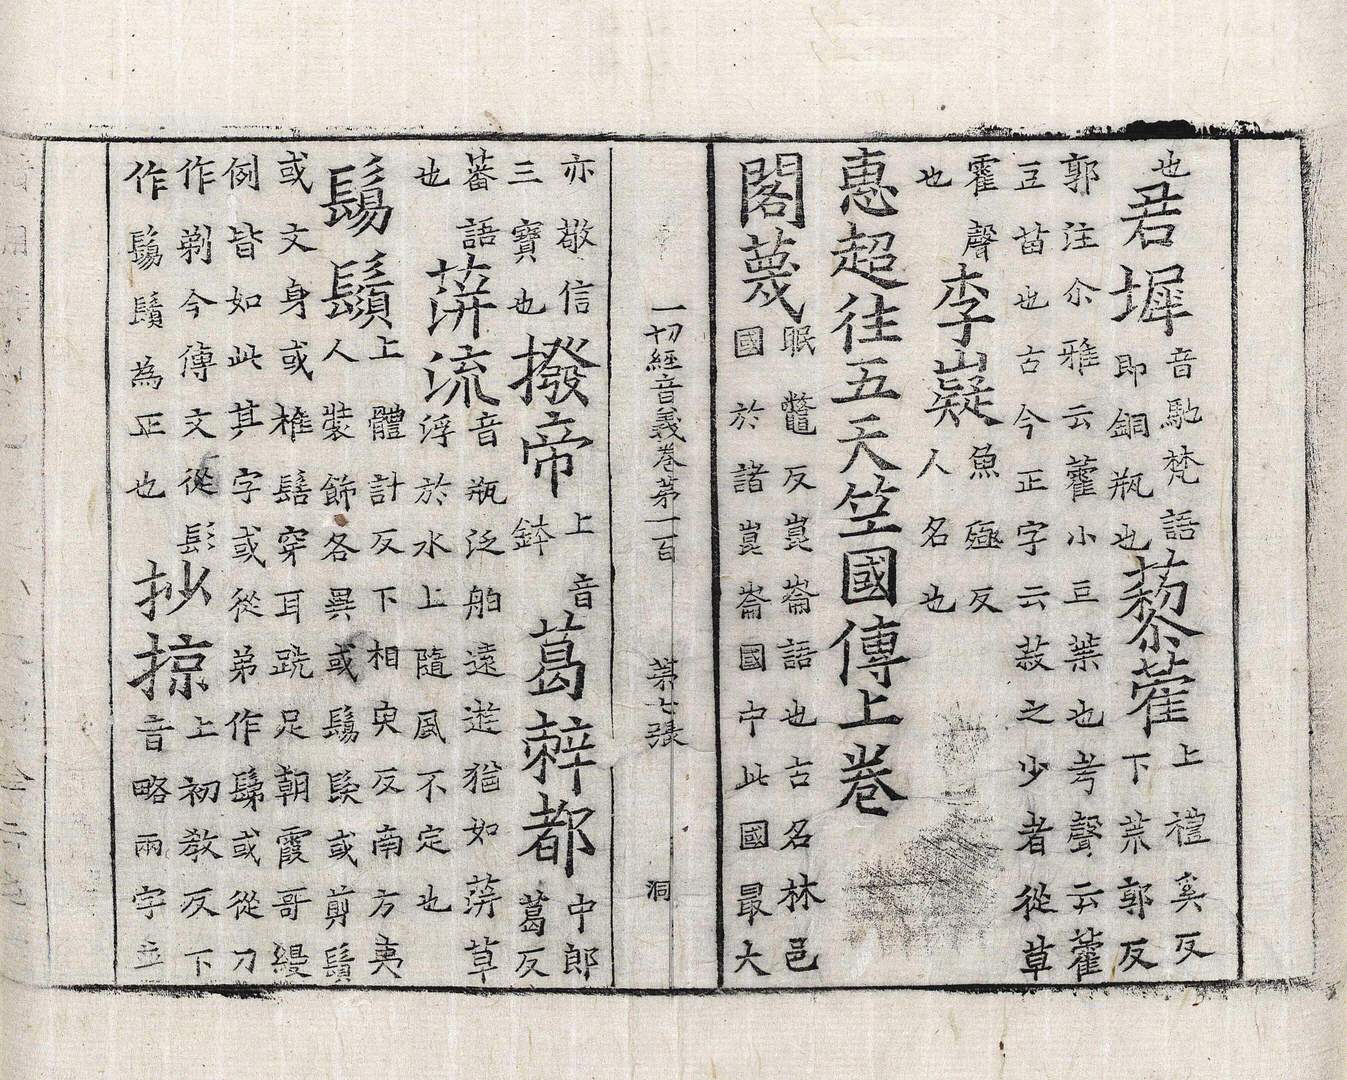 也君墀音馳梵語即銅瓶也藜藿上禮奚反下荒郭反
郭注尒雅云藿小豆葉也考聲云藿
豆苗也古今正字云菽之少者從草
霍聲也李嶷魚殛反人名也
惠超往五天竺國傳上卷
閣蔑眠鼈反崑崙語也古名林邑
國於諸崑崙國中此國最大
一切經音義卷第一百 第七張 洞
亦敬信三寶也撥帝上音鉢葛辢都中郎葛反
蕃語也蓱流音瓶泛舶遠遊猶如蓱草
浮於水上隨風不定也
鬄鬚上體計反下相臾反南方夷
人裝飾各異或鬄髮或剪鬚
或文身或椎髻穿耳跣足朝霞哥縵
例皆如此其字或從弟作鬀或從刀
作剃今傳文從髟作鬄鬚為正也抄掠上初教反下
音略兩字並